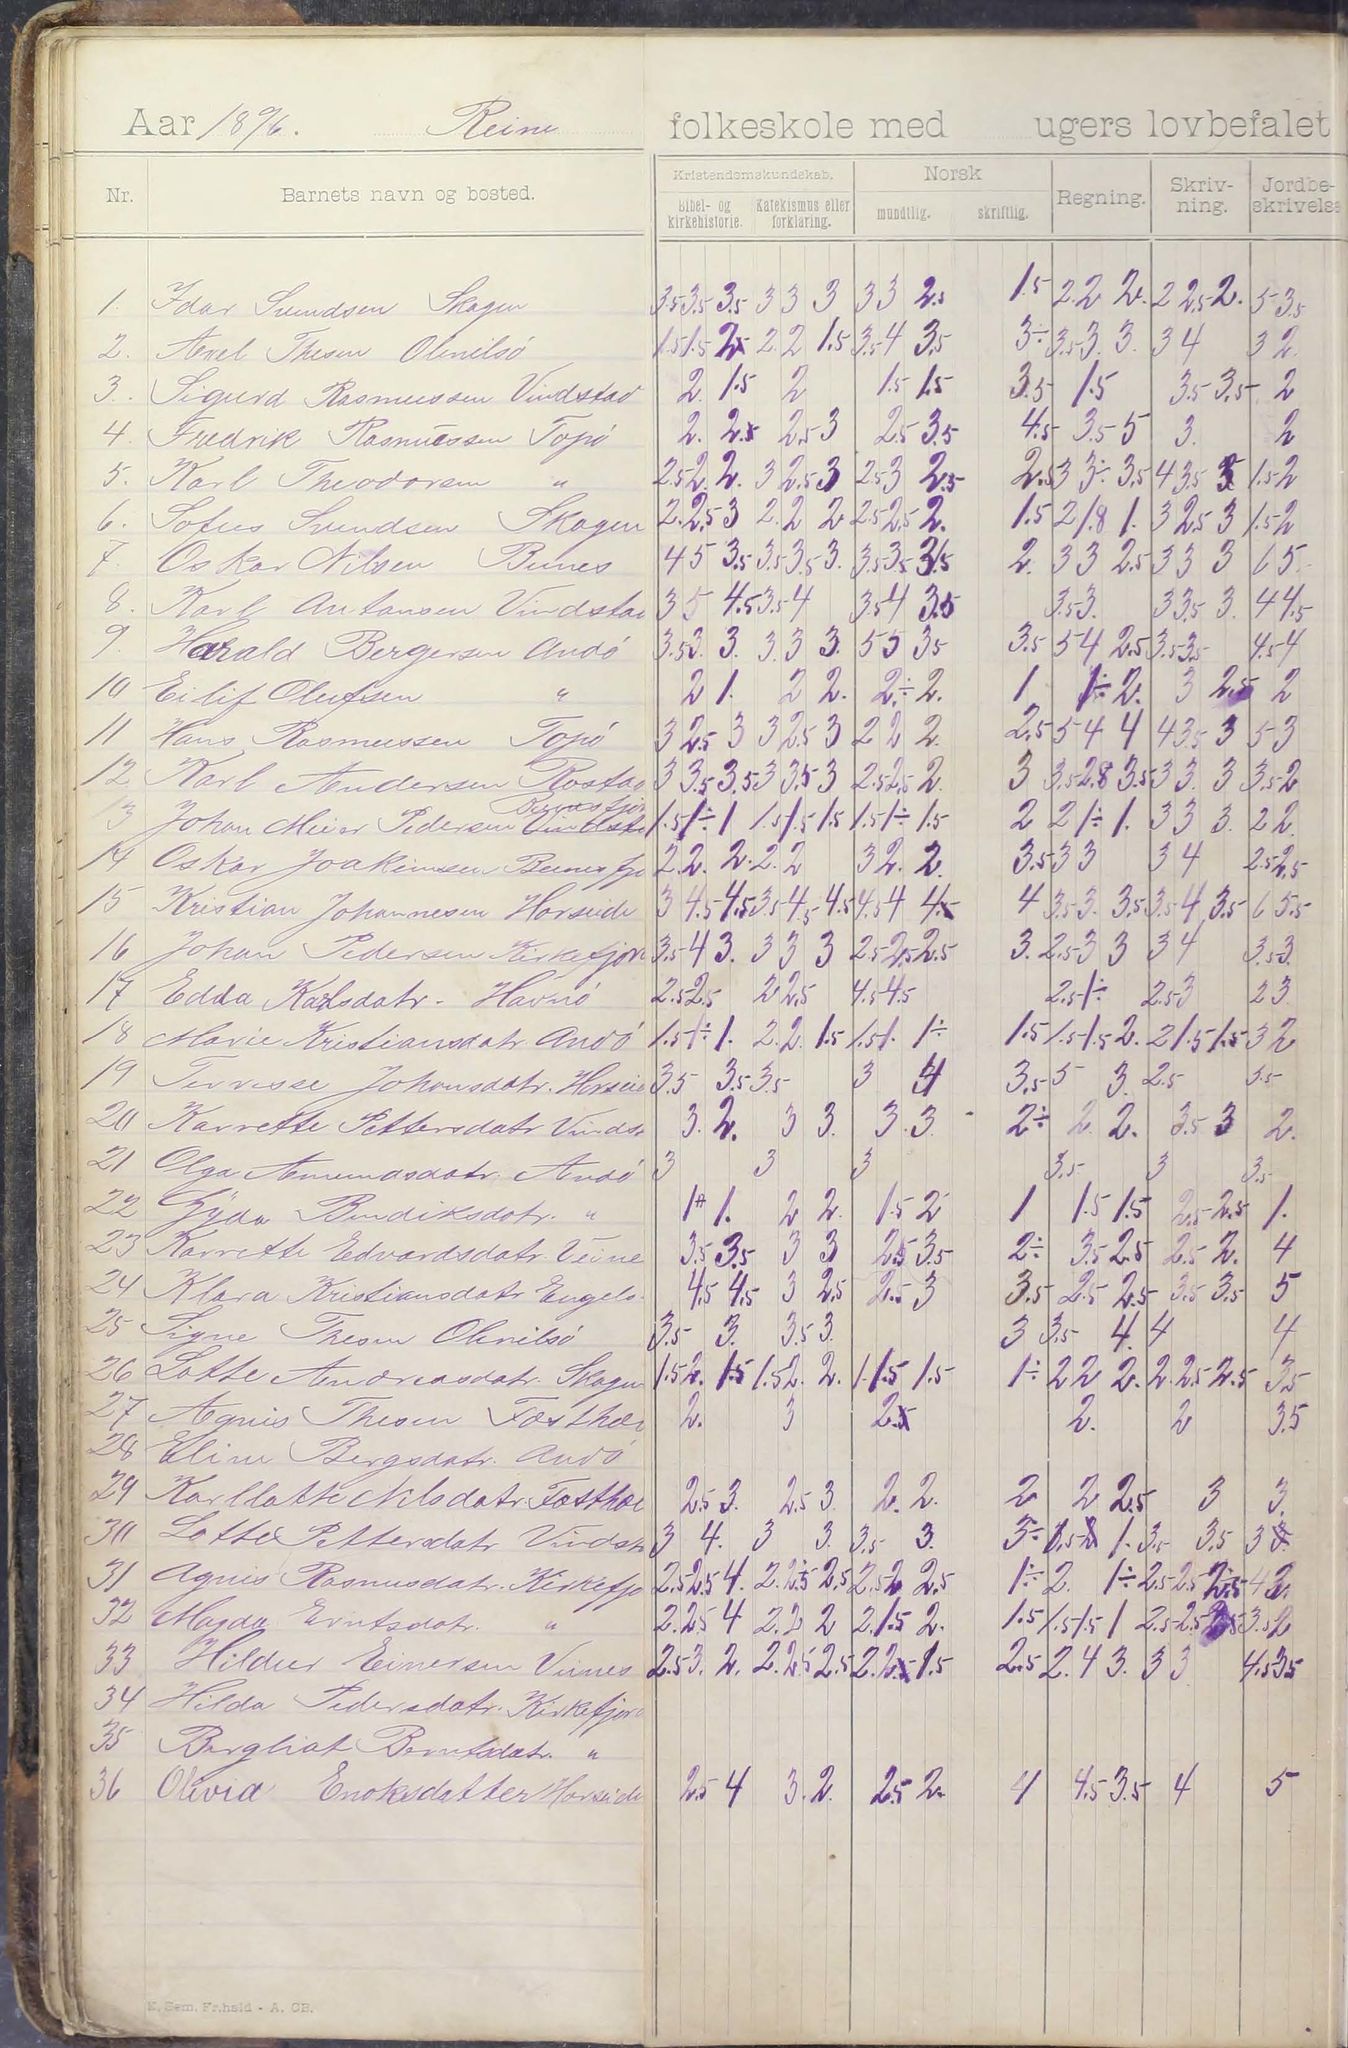 Aar 1896. Reine folkeskole med ugers lovbefalet
Nr. Barnets navn og bosted. Kristendomskundskab. Norsk Regning. Skriv-ning. Jordbe-skrivelse
Bibel- og kirkehistorie. Katekismus eller forklaring. mundtlig. skriftlig.
1. Idar Svendsen Skagen 3.5 3.5 3.5 3 3 3 3 3 2.5 1.5 2. 2 2. 2 2.5 2. 5 3.5
2. Axel Thesen Olenilsö 1.5 1.5 2 2. 2 1.5 3.5 4 3.5 3÷ 3.5 3. 3. 3 4 3 2.
3. Sigurd Rasmussen Vindstad 2. 1.5 2 1.5 1.5 3.5 1.5 3.5 3.5 2
4. Fredrik Rasmussen Topö 2. 2.5 2.5 3 2.5 3.5 4.5 3.5 5 3. 2
5. Karl Theodorsen " 2.5 2. 2. 3 2.5 3 2.5 3 2.5 2.5 3 3÷ 3.5 4 3.5 3 1.5 2
6. Sofus Svendsen Skagen 2. 2.5 3 2. 2 2 2.5 2.5 2. 1.5 2 1.8 1. 3 2.5 3 1.5 2
7. Oskar Nilsen Bunes 4 5 3.5 3.5 3.5 3. 3.5 3.5 3.5 2. 3 3 2.5 3 3 3 6 5
8. Karl Antonsen Vindstad 3 5 4.5 3.5 4 3.5 4 3.5 3.5 3. 3 3.5 3. 4 4.5
9. Harald Bergersen Andö 3.5 3. 3. 3. 3 3. 5 5 3.5 3.5 5 4 2.5 3.5 3.5 4.5 4
10 Eilif Olufsen " 2 1. 2 2. 2÷ 2. 1 1÷ 2. 3 2.5 2
11 Hans Rasmussen Topö 3 2.5 3 3 2.5 3 2 2 2. 2.5 5 4 4 4 3.5 3 5 3
12 Karl Andersen Rostad 3 3.5 3.5 3 3.5 3 2.5 2.5 2. 3 3.5 2.8 3.5 3 3. 3 3.5 2
13 Johan Meier Pedersen 1.5 1÷ 1 1.5 1.5 1.5 1.5 1÷ 1.5 2 2 1÷ 1. 3 3 3. 2 2.
14 Oskar Joakimsen Bunesfj 2. 2. 2. 2. 2 3 2. 2. 3.5 3 3 3 4 2.5 2.5
15 Kristian Johannesen Horseide 3 4.5 4.5 3.5 4.5 4.5 4.5 4 4 4 3.5 3. 3.5 3.5 4 3.5 6 5.5
16 Johan Pedersen Kirkefjord 3.5 4 3. 3 3 3 2.5 2.5 2.5 3. 2.5 3 3 3 4 3.5 3.
17 Edda Karlsdatr. Havnö 2.5 2.5 2 2.5 4.5 4.5 2.5 1÷ 2.5 3 2 3
18 Marie Kristiansdatr Andö 1.5 1÷ 1. 2. 2. 1.5 1.5 1. 1÷ 1.5 1.5 1.5 2. 2 1.5 1.5 3 2
19 Terresse Johansdatr. Horseid 3.5 3.5 3.5 3 4 3.5 5 3. 2.5 5.5
20 Karrette Pettersdatr Vindst 3. 2. 3 3. 3. 3. 2÷ 2. 2. 3.5 3 2.
21 Olga Amundsdatr. Andö 3 3 3 3.5 3 3.5
22 Gyda Bendiksdatr. " 1 1. 2 2. 1.5 2 1 1.5 1.5 2.5 2.5 1.
23 Karrette Edvardsdatr. 3.5 3.5 3 3 2.5 3.5 2÷ 3.5 2.5 2.5 2. 4
24 Klara Kristiansdatr Engels. 4.5 4.5 3 2.5 2.5 3 3.5 2.5 2.5 3.5 3.5 5
25 Signe Thesen Olenilsö 3.5 3. 3.5 3. 3 3.5 4. 4 4
26 Lotte Andreasdatr. Skagen 1.5 2. 1.5 1.5 2. 2. 1. 1.5 1.5 1÷ 2 2 2. 2. 2.5 2.5 3.5
27 Agnis Thesen 2. 3 2. 2. 2 3.5
28 Eline Bergsdatr. Andö
29 Karllotte Nilsdatr. 2.5 3. 2.5 3. 2. 2. 2 2 2.5 3 3.
30 Lotte Pettersdatr Vindst 3 4. 3 3. 3.5 3. 3÷ 1. 3.5 3.5 3
31 Agnis Rasmusdatr. Kirkefjo 2.5 2.5 4. 2. 2.5 2.5 2.5 2 2.5 1÷ 2. 1÷ 2.5 2.5 2.5 4 3.
32 Magda Erntsdatr. " 2. 2.5 4 2. 2 2 2. 1.5 2. 1.5 1.5 1.5 1 2.5 2.5 3.5 2
33 Hildur Einersen Vinnes 2.5 3. 2. 2. 2.5 2.5 2. 2. 1.5 2.5 2. 4 3. 3 3 4.5 3.5
34 Hilda Pedersdatr. Kirkefjord
35 Bergliot Berntsdatr. "
36 Olivia Enoksdatter Horseide 2.5 4 3. 2. 2.5 2. 4 4.5 3.5 4 5
E. Sem. Fr.hald - A. CB.